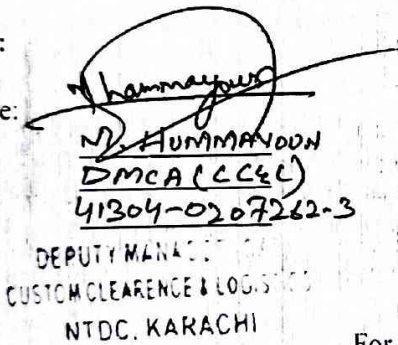 :
e:
M. HUMMAYOUN
DMCA (CC&L)
41304-0207262-3
DEPUTY
CUSTOM CLEARENCE & LOGIS
NTDC, KARACHI
For